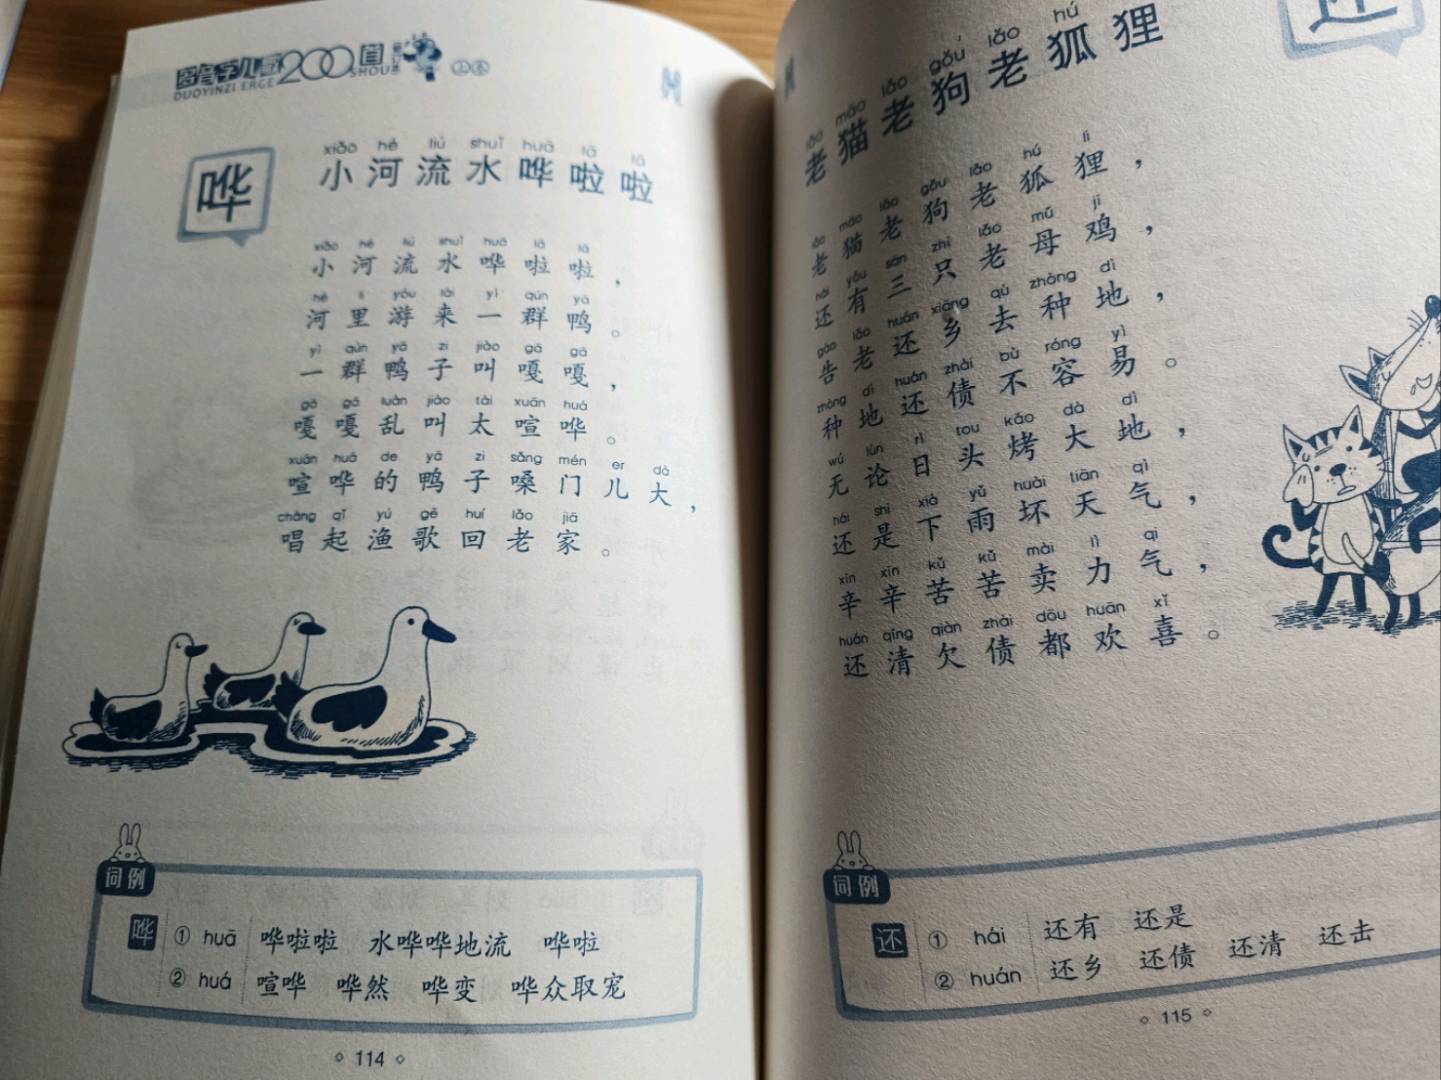 多音字儿歌200首
DUOYINZI ERGE SHOU
哗
xiǎo hé liú shuǐ huā lā lā
小河流水哗啦啦
xiǎo hé liú shuǐ huā lā lā
小河流水哗啦啦，
hé lǐ yóu lái yì qún yā
河里游来一群鸭。
yì qún yā zi jiào gā gā
一群鸭子叫嘎嘎，
gā gā luàn jiào tài xuān huá
嘎嘎乱叫太喧哗。
xuān huá de yā zi sǎng mén er dà
喧哗的鸭子嗓门儿大，
chàng qǐ yú gē huí lǎo jiā
唱起渔歌回老家。
词例
哗 ① huā 哗啦啦 水哗哗地流 哗啦
② huá 喧哗 哗然 哗变 哗众取宠
114
还
lǎo māo lǎo gǒu lǎo hú
老猫老狗老狐狸
lǎo māo lǎo gǒu lǎo hú li
老猫老狗老狐狸，
hái yǒu sān zhī lǎo mǔ jī
还有三只老母鸡，
gào lǎo huán xiāng qù zhòng dì
告老还乡去种地，
zhòng dì huán zhài bù róng yì
种地还债不容易。
wú lùn rì tou kǎo dà dì
无论日头烤大地，
hái shì xià yǔ huài tiān qì
还是下雨坏天气，
xīn xīn kǔ kǔ mài lì qi
辛辛苦苦卖力气，
huán qīng qiàn zhài dōu huān xǐ
还清欠债都欢喜。
词例
还 ① hái 还有 还是
② huán 还乡 还债 还清 还击
115